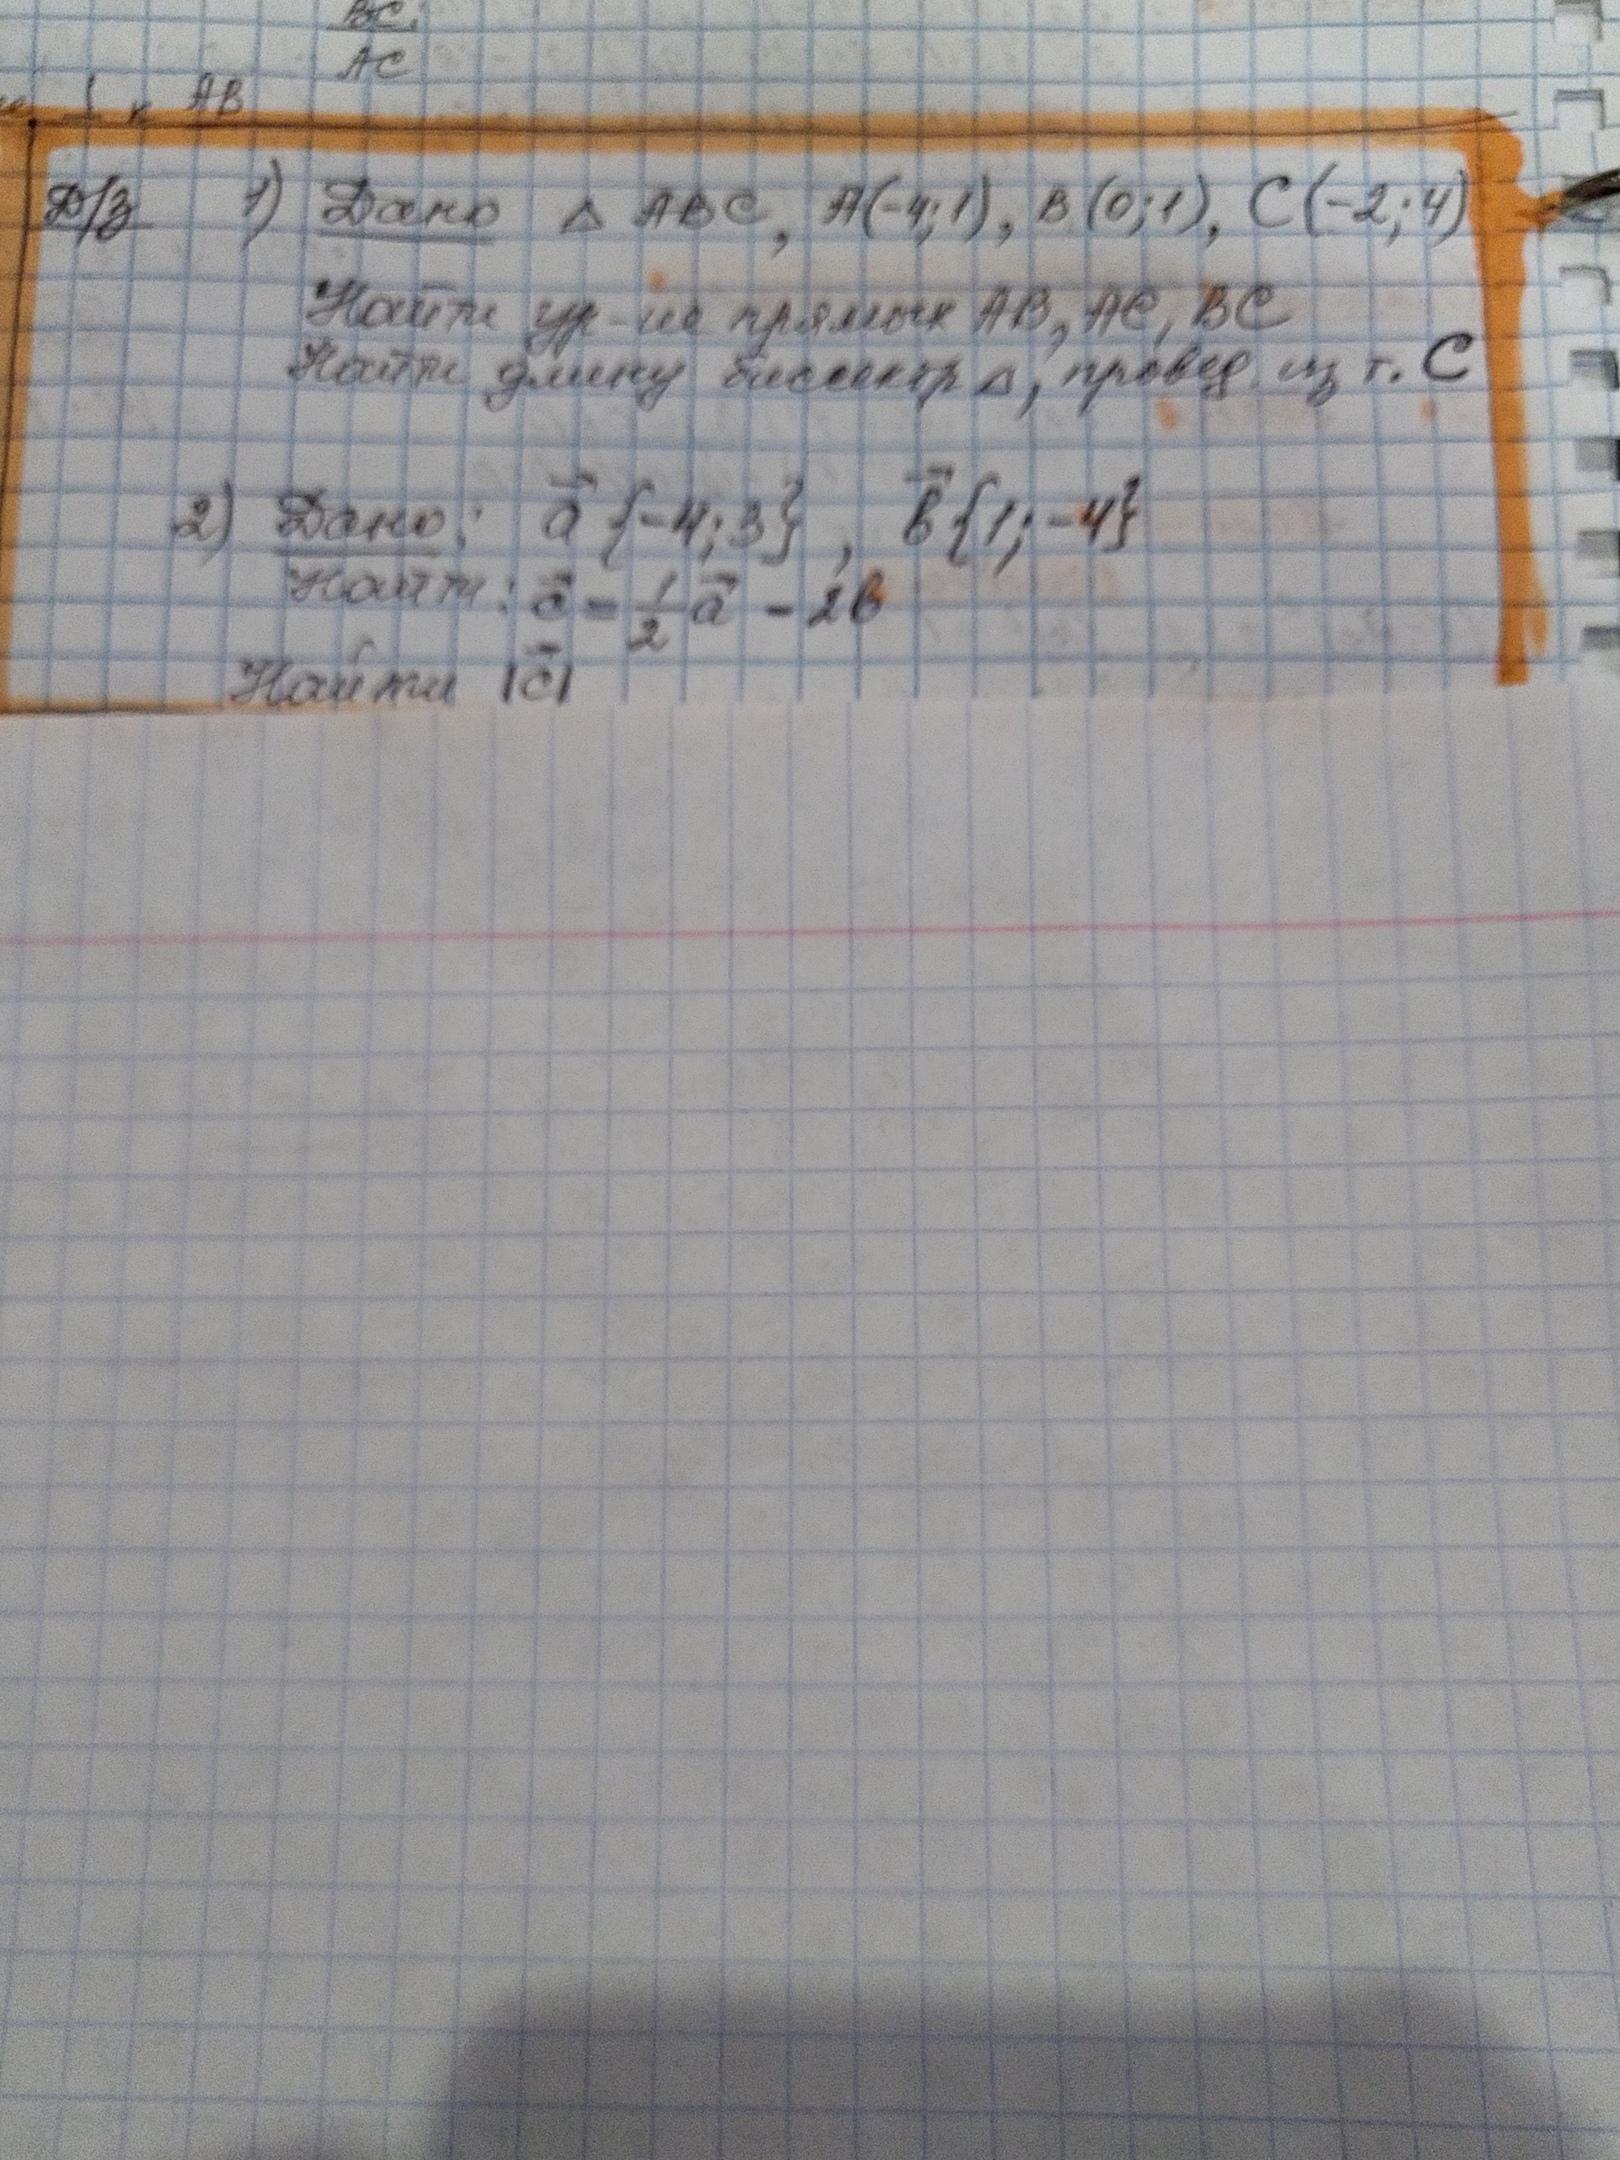 BC
AC
к AB
Д/З 1) Дано △ ABC, A(-4;1), B(0;1), C(-2;4)
Найти ур-ие прямых AB, AC, BC
Найти длину биссектр △, провед из т. C
2) Дано: a⃗ {-4;3}, b⃗ {1;-4}
Найти: c⃗ = 1/2 a⃗ - 2b
Найти |c⃗|